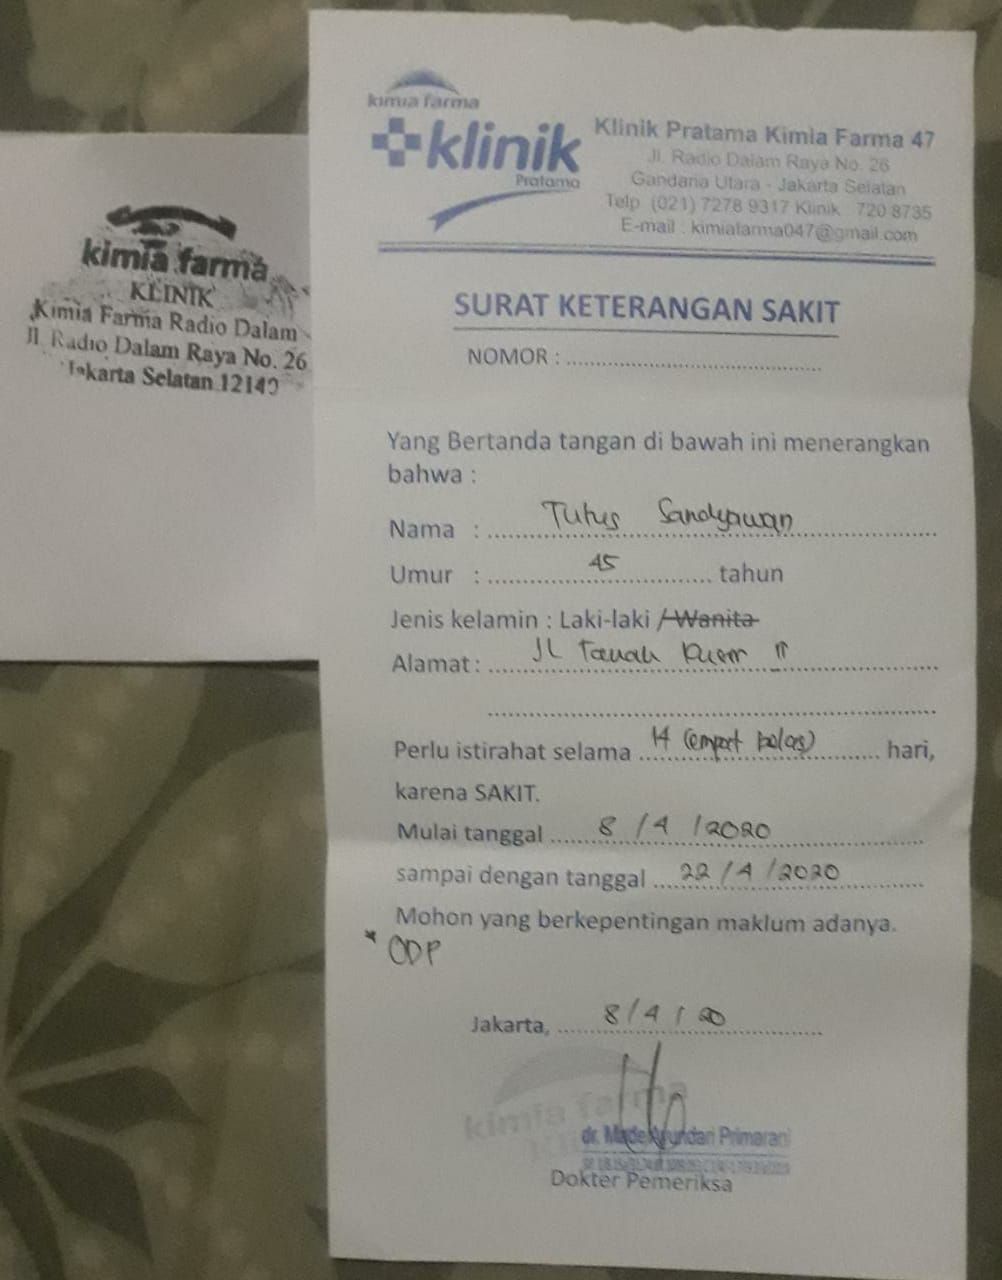 kimia farma
KLINIK
Kimia Farma Radio Dalam
Jl. Radio Dalam Raya No. 26
Jakarta Selatan 12140
kimia farma
klinik
Pratama
Klinik Pratama Kimia Farma 47
Jl. Radio Dalam Raya No. 26
Gandaria Utara - Jakarta Selatan
Telp (021) 7278 9317 Klinik : 720 8735
E-mail : kimiafarma047@gmail.com
SURAT KETERANGAN SAKIT
NOMOR : ........................................
Yang Bertanda tangan di bawah ini menerangkan
bahwa :
Nama : Tutus Sandyawan
Umur : 45 tahun
Jenis kelamin : Laki-laki / Wanita
Alamat : Jl Tanah II
Perlu istirahat selama 14 (empat belas) hari,
karena SAKIT.
Mulai tanggal 8 / 4 / 2020
sampai dengan tanggal 22 / 4 / 2020
Mohon yang berkepentingan maklum adanya.
* ODP
Jakarta, 8 / 4 / 20
kimia farma
dr. Made Ayundari Primarani
Dokter Pemeriksa